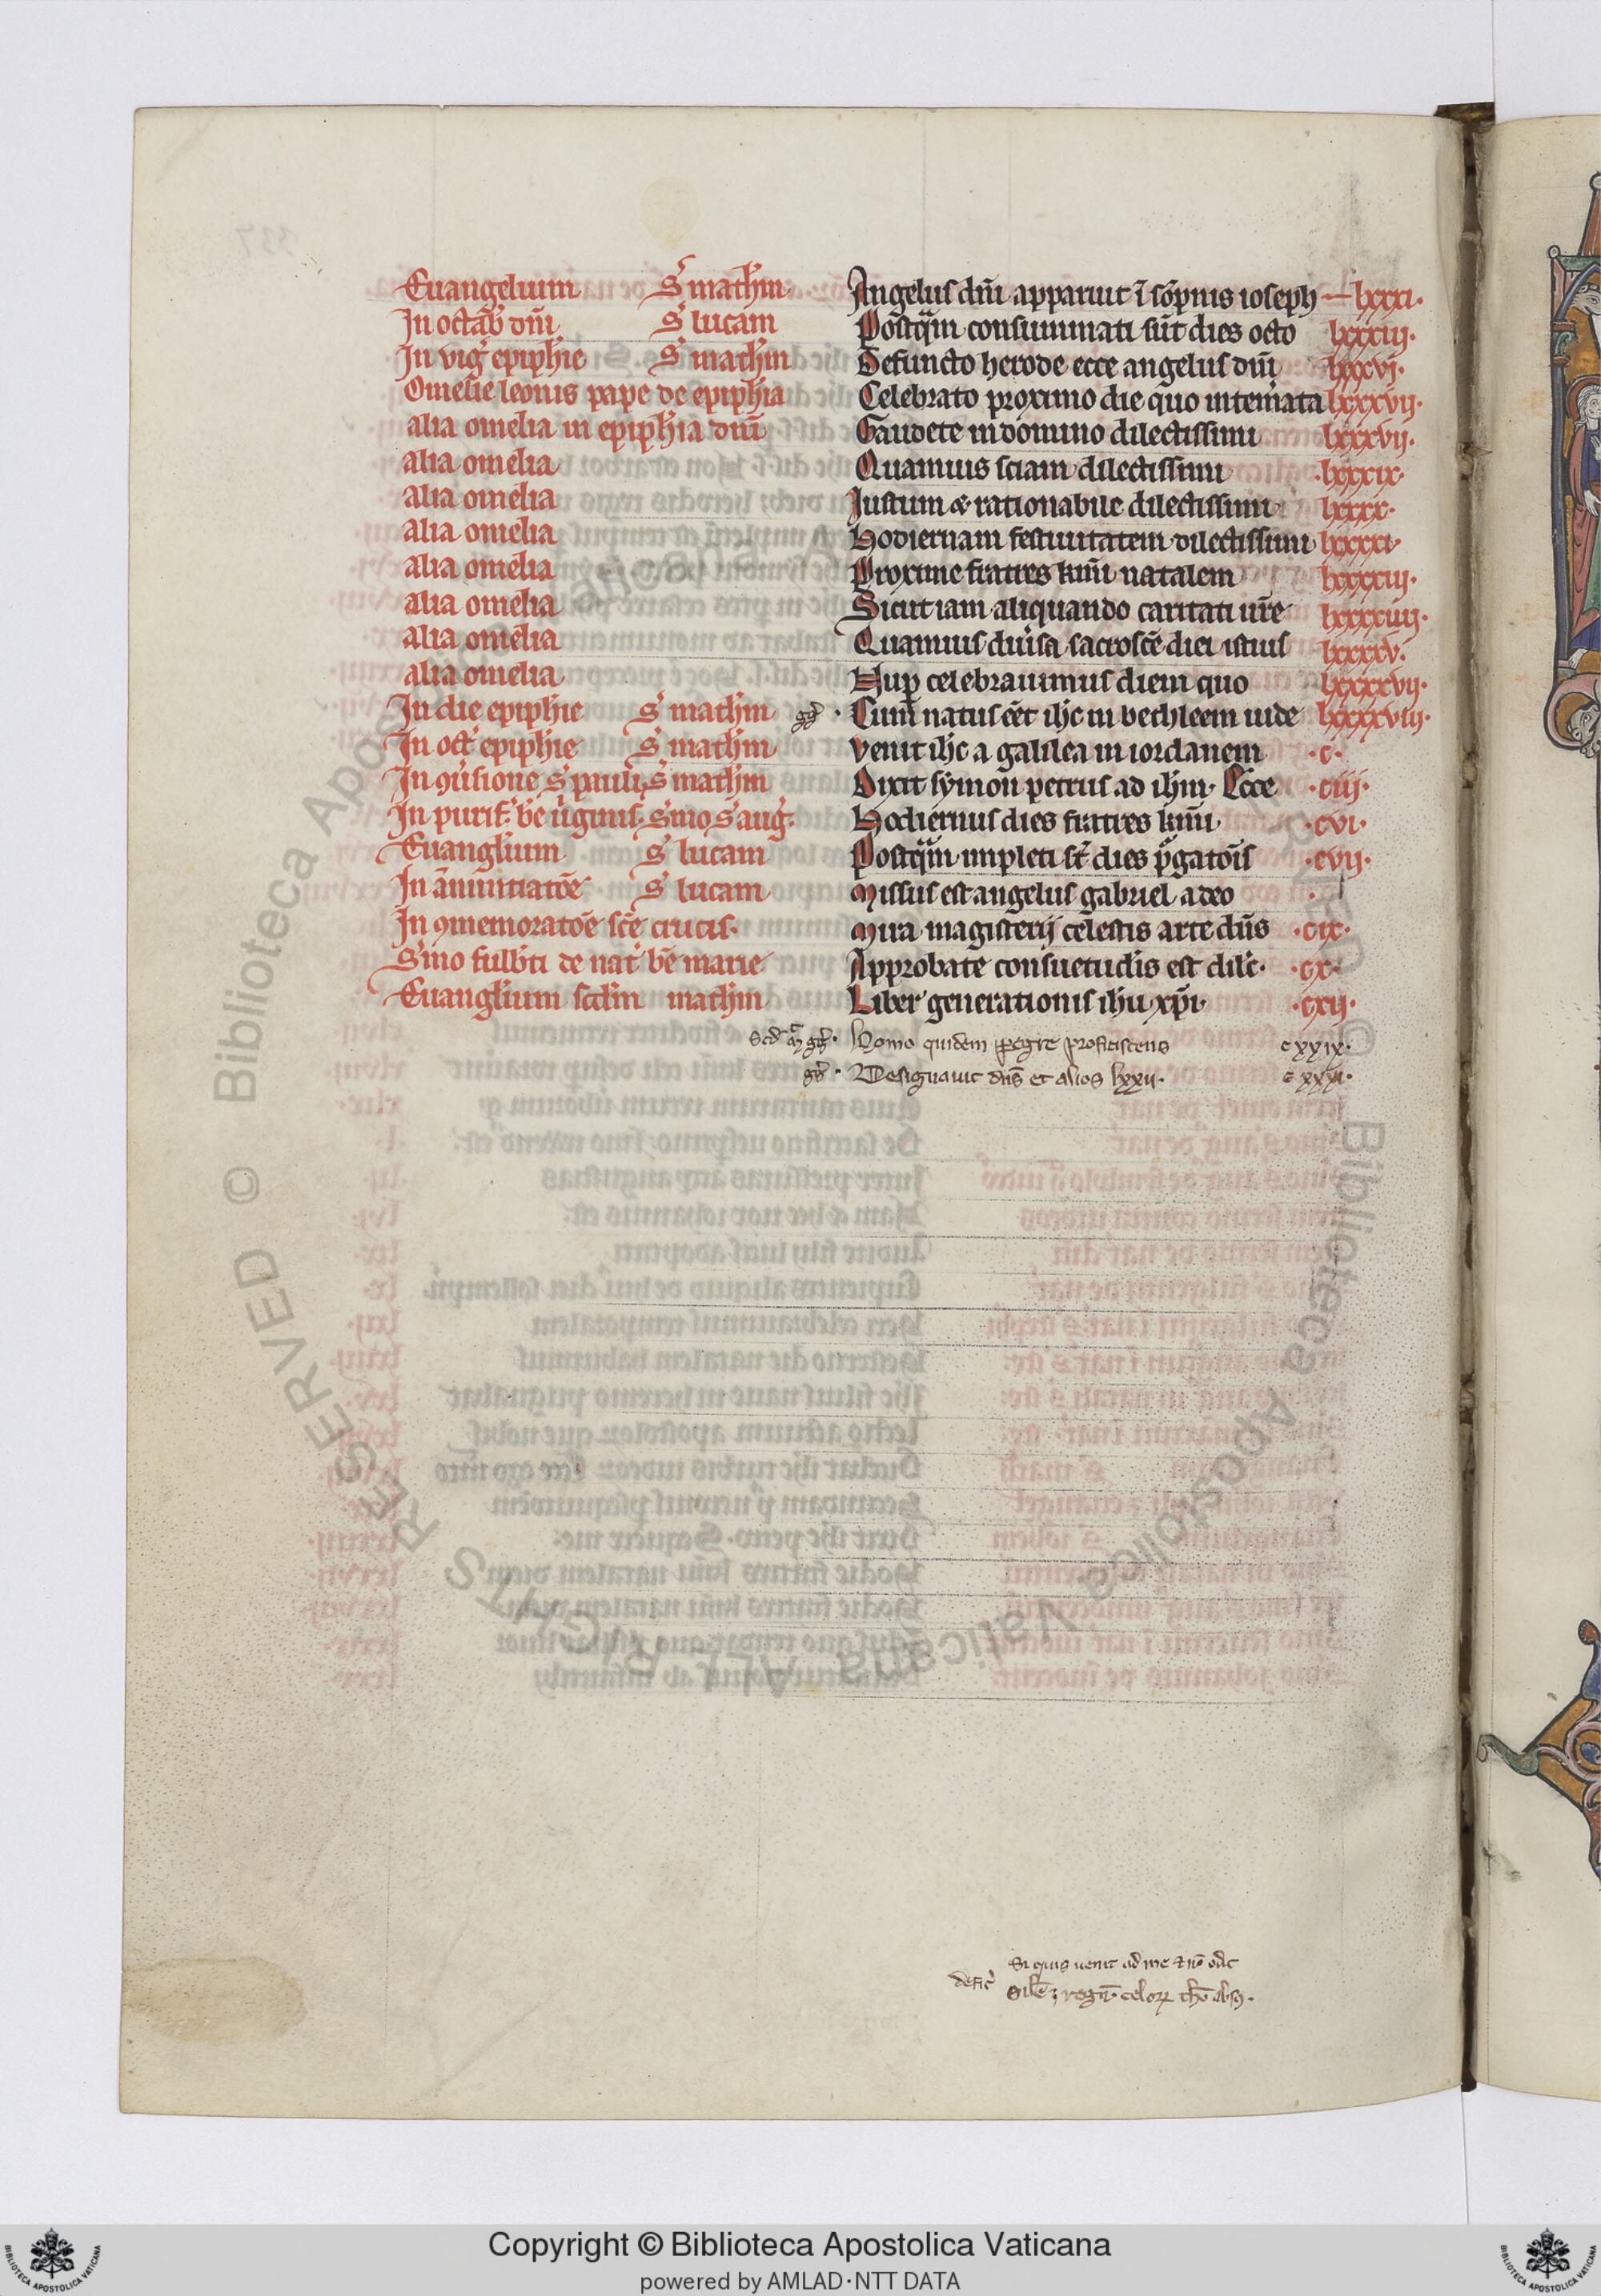 Euangelium S mathm Angelus dni apparuit ī sōpnis ioseph lxxxi.
In octab dni S lucam Postqm consummati sūt dies octo lxxxiij.
In vig epiphie S mathm Defuncto herode ecce angelus dni lxxxvj.
Omelie leonis pape de epiphia Celebrato proximo die quo intemata lxxxvij.
alia omelia in epiphia dni Gaudete in domino dilectissimi lxxxvij.
alia omelia Quamuis sciam dilectissimi .lxxxix.
alia omelia Iustum & rationabile dilectissimi lxxxx.
alia omelia Hodiernam festiuitatem dilectissimi lxxxxi.
alia omelia Proxime fratres kmi natalem lxxxxiij.
alia omelia Sicut iam aliquando caritati ure lxxxxiiij.
alia omelia Quamuis duisa sacrosce diei istius lxxxxv.
alia omelia Nup celebrauimus diem quo lxxxxvij.
In die epiphie S mathm gg . Cum natus eēt ihc in bethleem iude lxxxxviij.
In oct epiphie S mathm Venit ihc a galilea in iordanem .c.
In 9uisione S pauli S mathm Dixit symon petrus ad ihm. Ecce .ciij.
In purif. be uginis. Smo S aug. Hodiernus dies fratres kmi .cvi.
Euanglium S lucam Postqm impleti st dies pgatois .cvij.
In annuntiatōe S lucam Missus est angelus gabriel a deo
In 9memoratōe sce crucis. Mira magisterij celestis arte dns .cix.
Smo fulbti de nat be marie Approbate consuetudis est dilc. .cx.
Euanglium scdm mathm Liber generationis ihu xpi. .cxij.
Homo quidem pegre proficiscens cxxix.
Designauit dns et alios lxxii. cxxxi.
Si quis uenit ad me & nō odit
defic Sile regn. celor
Copyright © Biblioteca Apostolica Vaticana
powered by AMLAD·NTT DATA